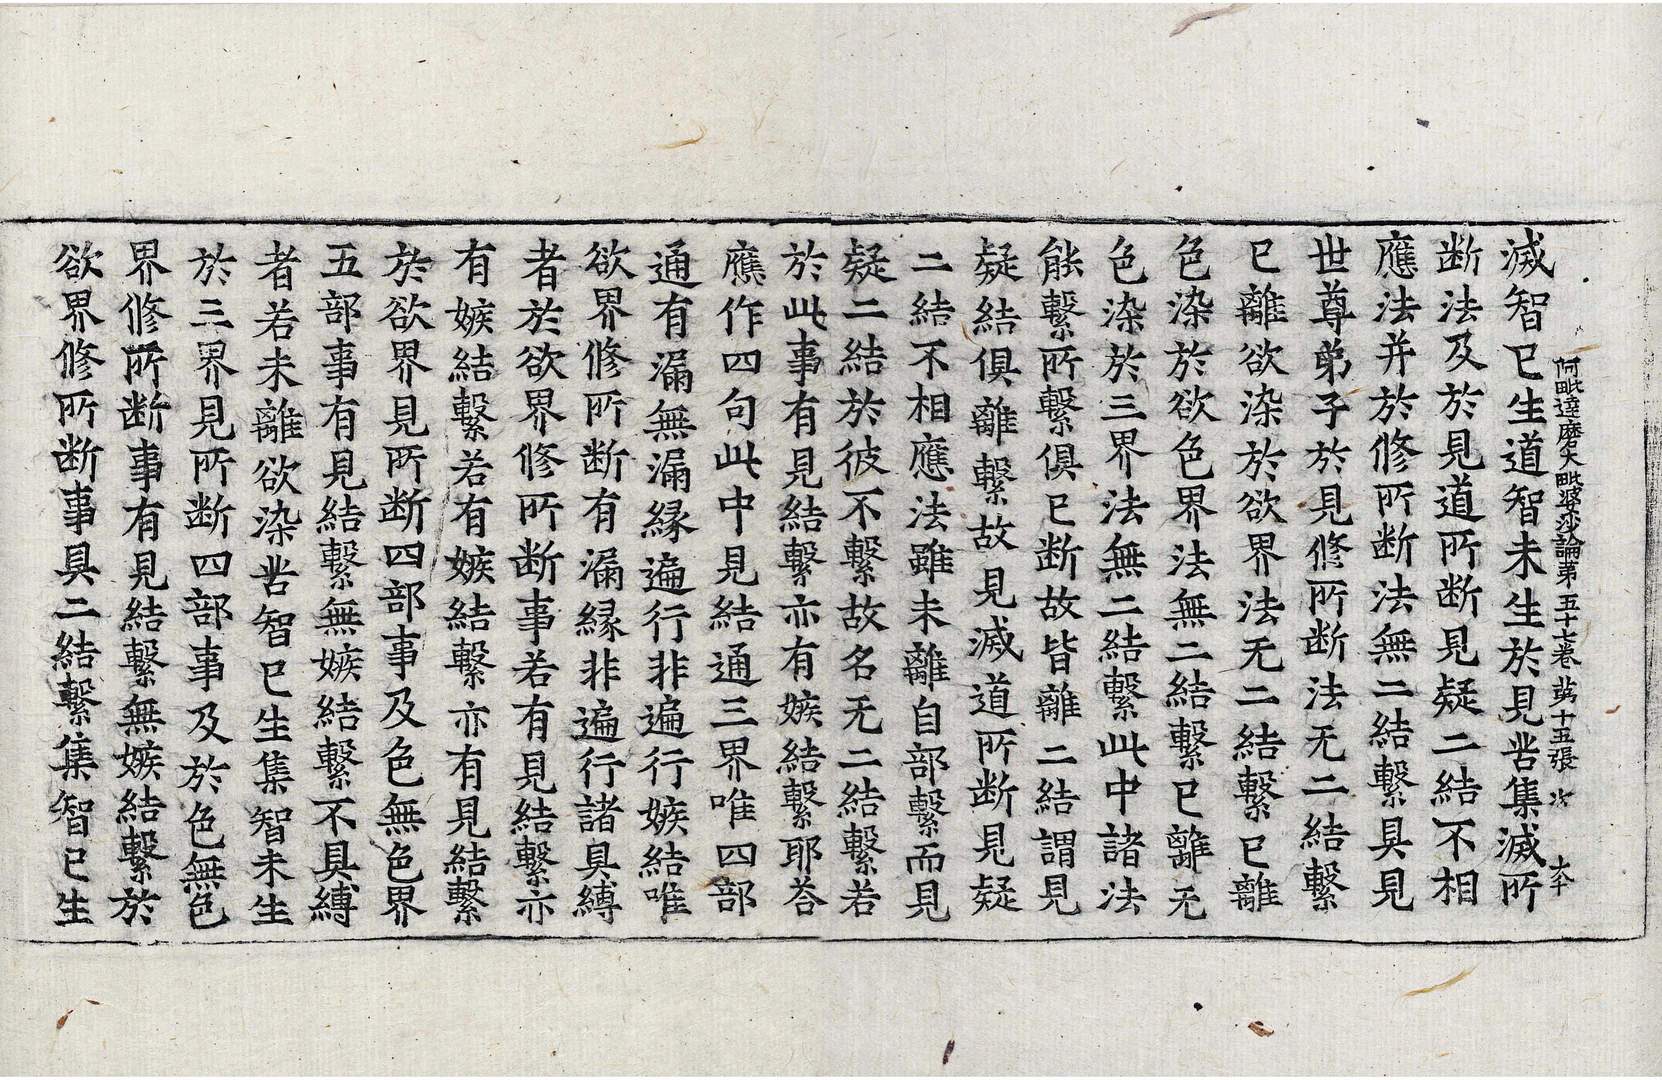 阿毗達磨大毗婆沙論第五十七卷 第十五張 次
滅智已生道智未生於見苦集滅所
断法及於見道所断見疑二結不相
應法并於修所断法無二結繫具見
世尊弟子於見修所断法无二結繫
已離欲染於欲界法无二結繫已離
色染於欲色界法無二結繫已離无
色染於三界法無二結繫此中諸法
能繫所繫俱已断故皆離二結謂見
疑結俱離繫故見滅道所断見疑
二結不相應法雖未離自部繫而見
疑二結於彼不繫故名无二結繫若
於此事有見結繫亦有嫉結繫耶荅
應作四句此中見結通三界唯四部
通有漏無漏緣遍行非遍行嫉結唯
欲界修所断有漏緣非遍行諸具縛
者於欲界修所断事若有見結繫亦
有嫉結繫若有嫉結繫亦有見結繫
於欲界見所断四部事及色無色界
五部事有見結繫無嫉結繫不具縛
者若未離欲染苦智已生集智未生
於三界見所断四部事及於色無色
界修所断事有見結繫無嫉結繫於
欲界修所断事具二結繫集智已生